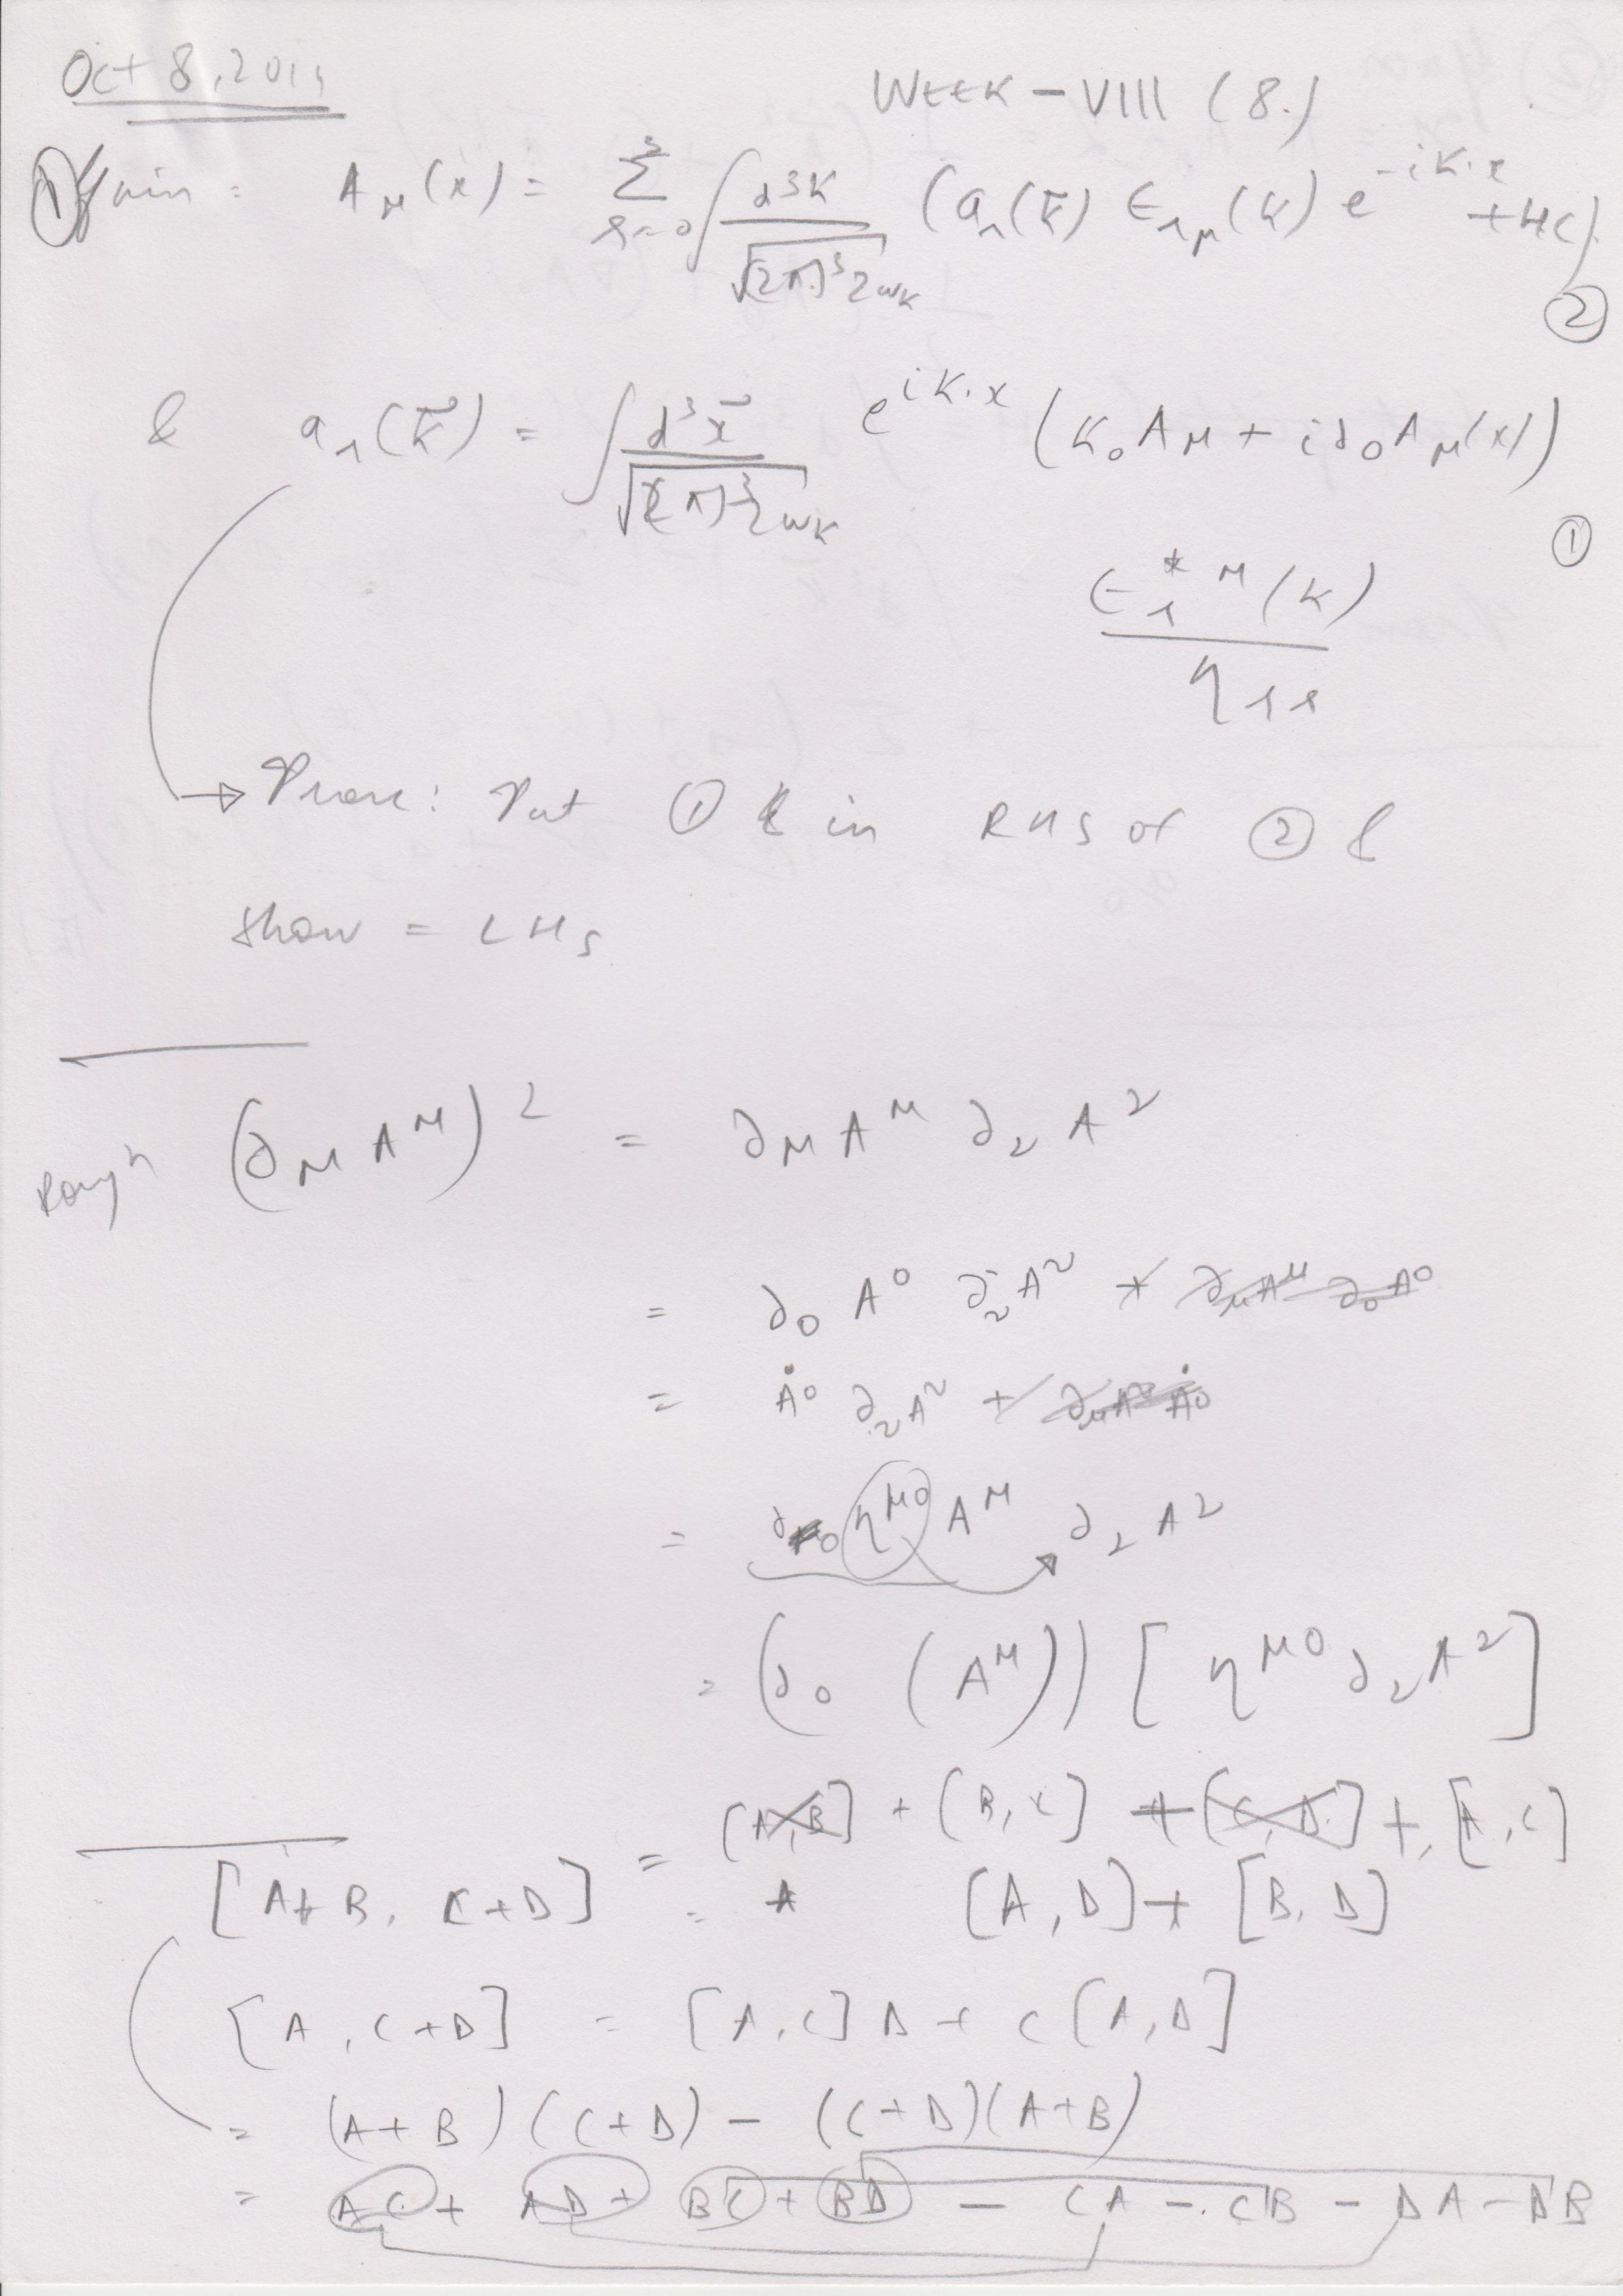 Oct 8, 201
WEEK – VIII (8.)
① Given : A_μ(x) = Σ_{λ=0}^{3} ∫ d³k / √((2π)³ 2ω_k) (a_λ(k̄) ϵ_{λμ}(k) e^{-ik·x} + HC)
②
& a_λ(k̄) = ∫ d³x̄ / √((2π)³ 2ω_k) e^{ik·x} (k₀ A_μ + i∂₀ A_μ(x))
①
ϵ*_λ^μ(k) / η_{λλ}
→ Prove : Put ① in RHS of ② &
Show = LHS
Rough (∂_μ A^μ)² = ∂_μ A^μ ∂_ν A^ν
= ∂₀ A⁰ ∂_ν A^ν + ∂_μ A^μ ∂₀ A⁰
= Ȧ⁰ ∂_ν A^ν + ∂_μ A^μ Ȧ⁰
= ∂₀ η^{μ0} A^μ ∂_ν A^ν
= (∂₀ (A^μ)) [η^{μ0} ∂_ν A^ν]
= [A,B] + [B,C] + [C,D] + [A,C]
[A+B, C+D] = + [A,D] + [B,D]
[A, C+D] = [A,C] D + C [A,D]
= (A+B)(C+D) – (C+D)(A+B)
= AC + AD + BC + BD – CA – CB – DA – DB